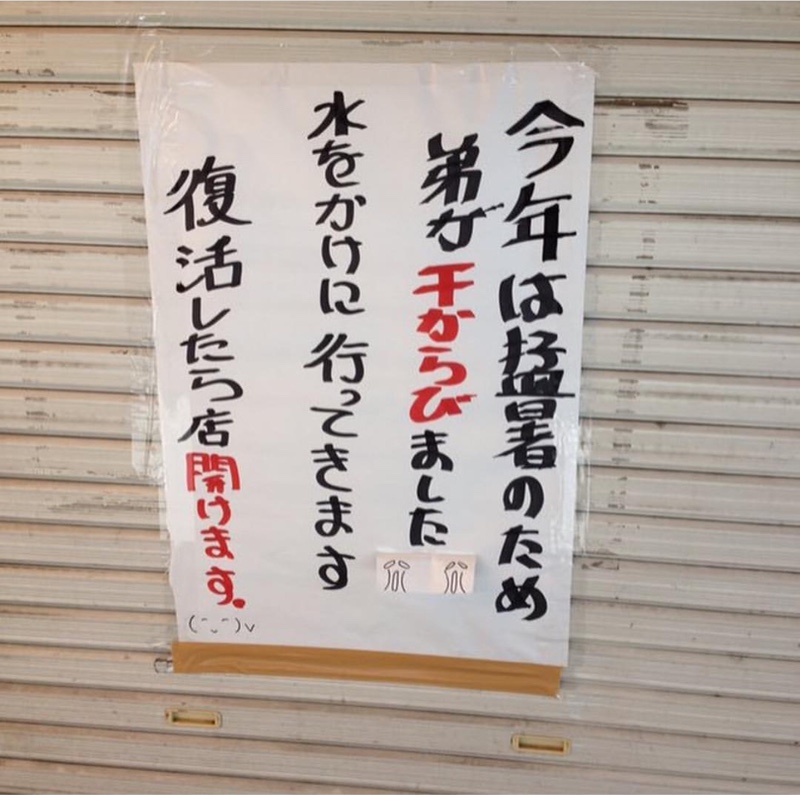 今年は猛暑のため
弟が干からびました
水をかけに行ってきます
復活したら店開けます。
(ˉᴗˉ)v